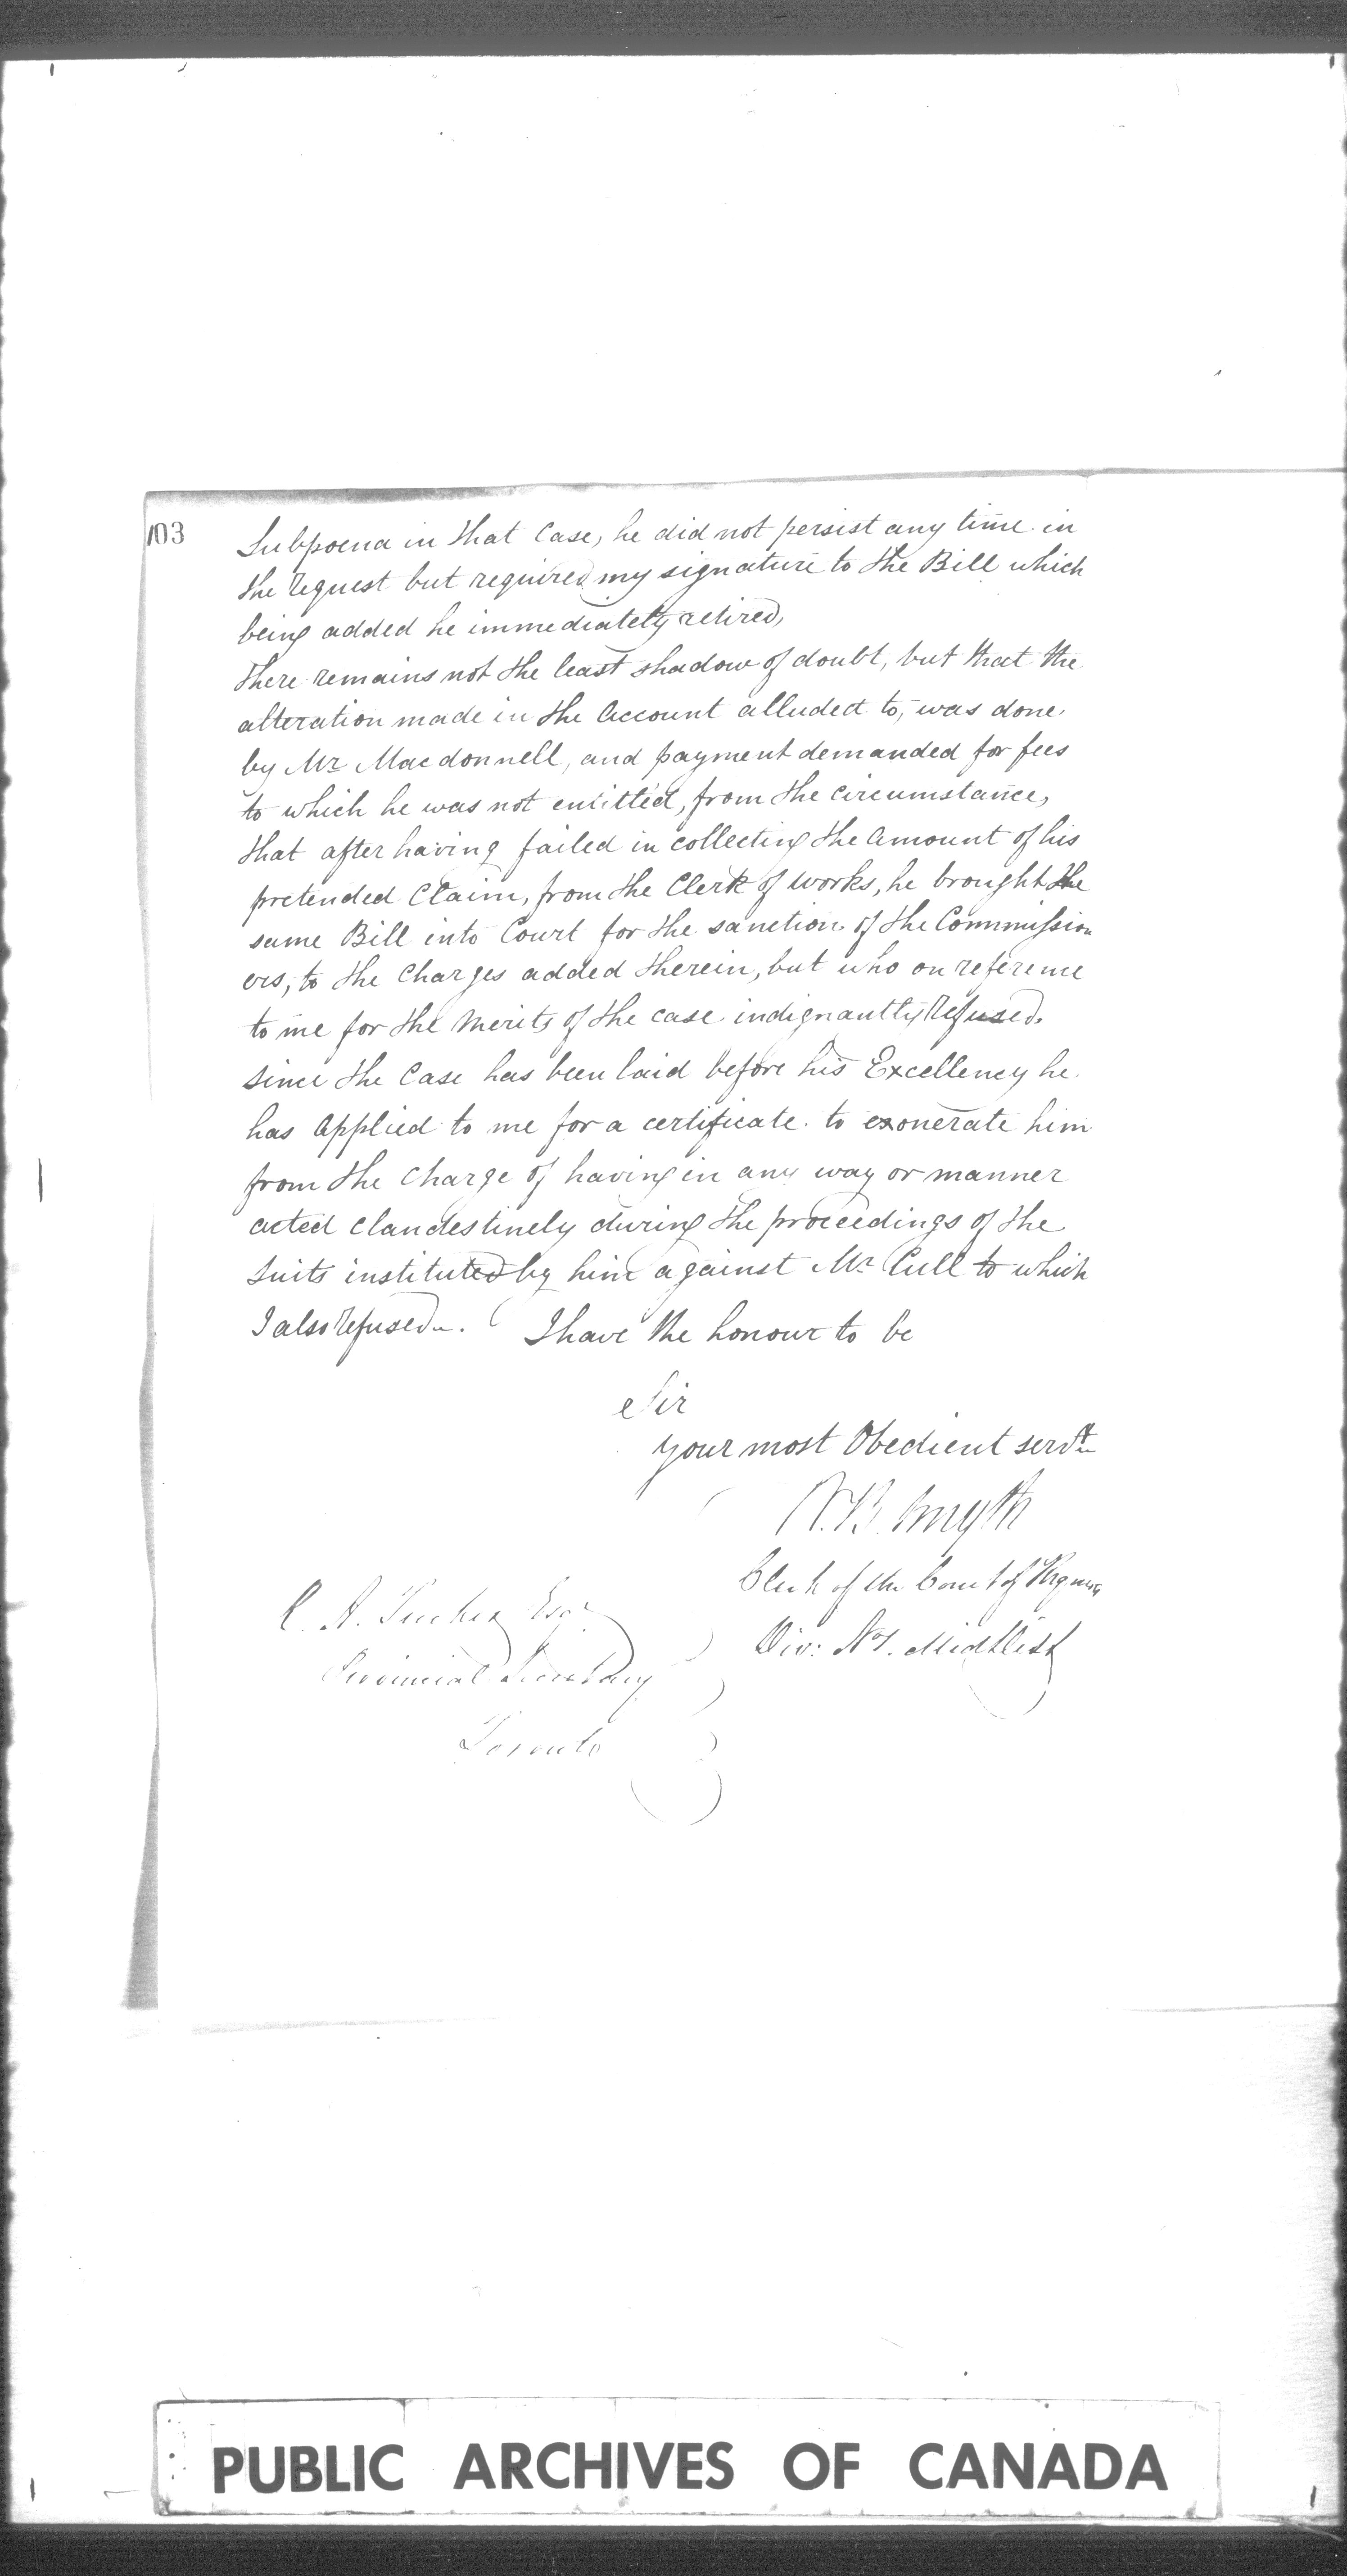 103
Subpoena in that Case, he did not persist any time in
the request but required my signature to the Bill which
being added he immediately retired,
There remains not the least shadow of doubt, but that the
alteration made in the Account alluded to, was done
by Mr Macdonnell, and payment demanded for fees
to which he was not entitled, from the circumstance,
that after having failed in collecting the Amount of his
pretended Claim, from the Clerk of works, he brought the
same Bill into Court for the sanction of the Commission
ers, to the Charges added therein, but who on reference
to me for the Merits of the case indignantly Refused.
since the Case has been laid before his Excellency he
has Applied to me for a certificate to exonerate him
from the Charge of having in any way or manner
acted clandestinely during the proceedings of the
suits instituted by him against Mr Cull to which
I also Refused. I have the honour to be
Sir
your most Obedient servt
B. Smyth
Clerk of the Court of
Div: Midl Dist
C. A. Tucker Esqr
Provincial Secretary
Toronto
PUBLIC ARCHIVES OF CANADA